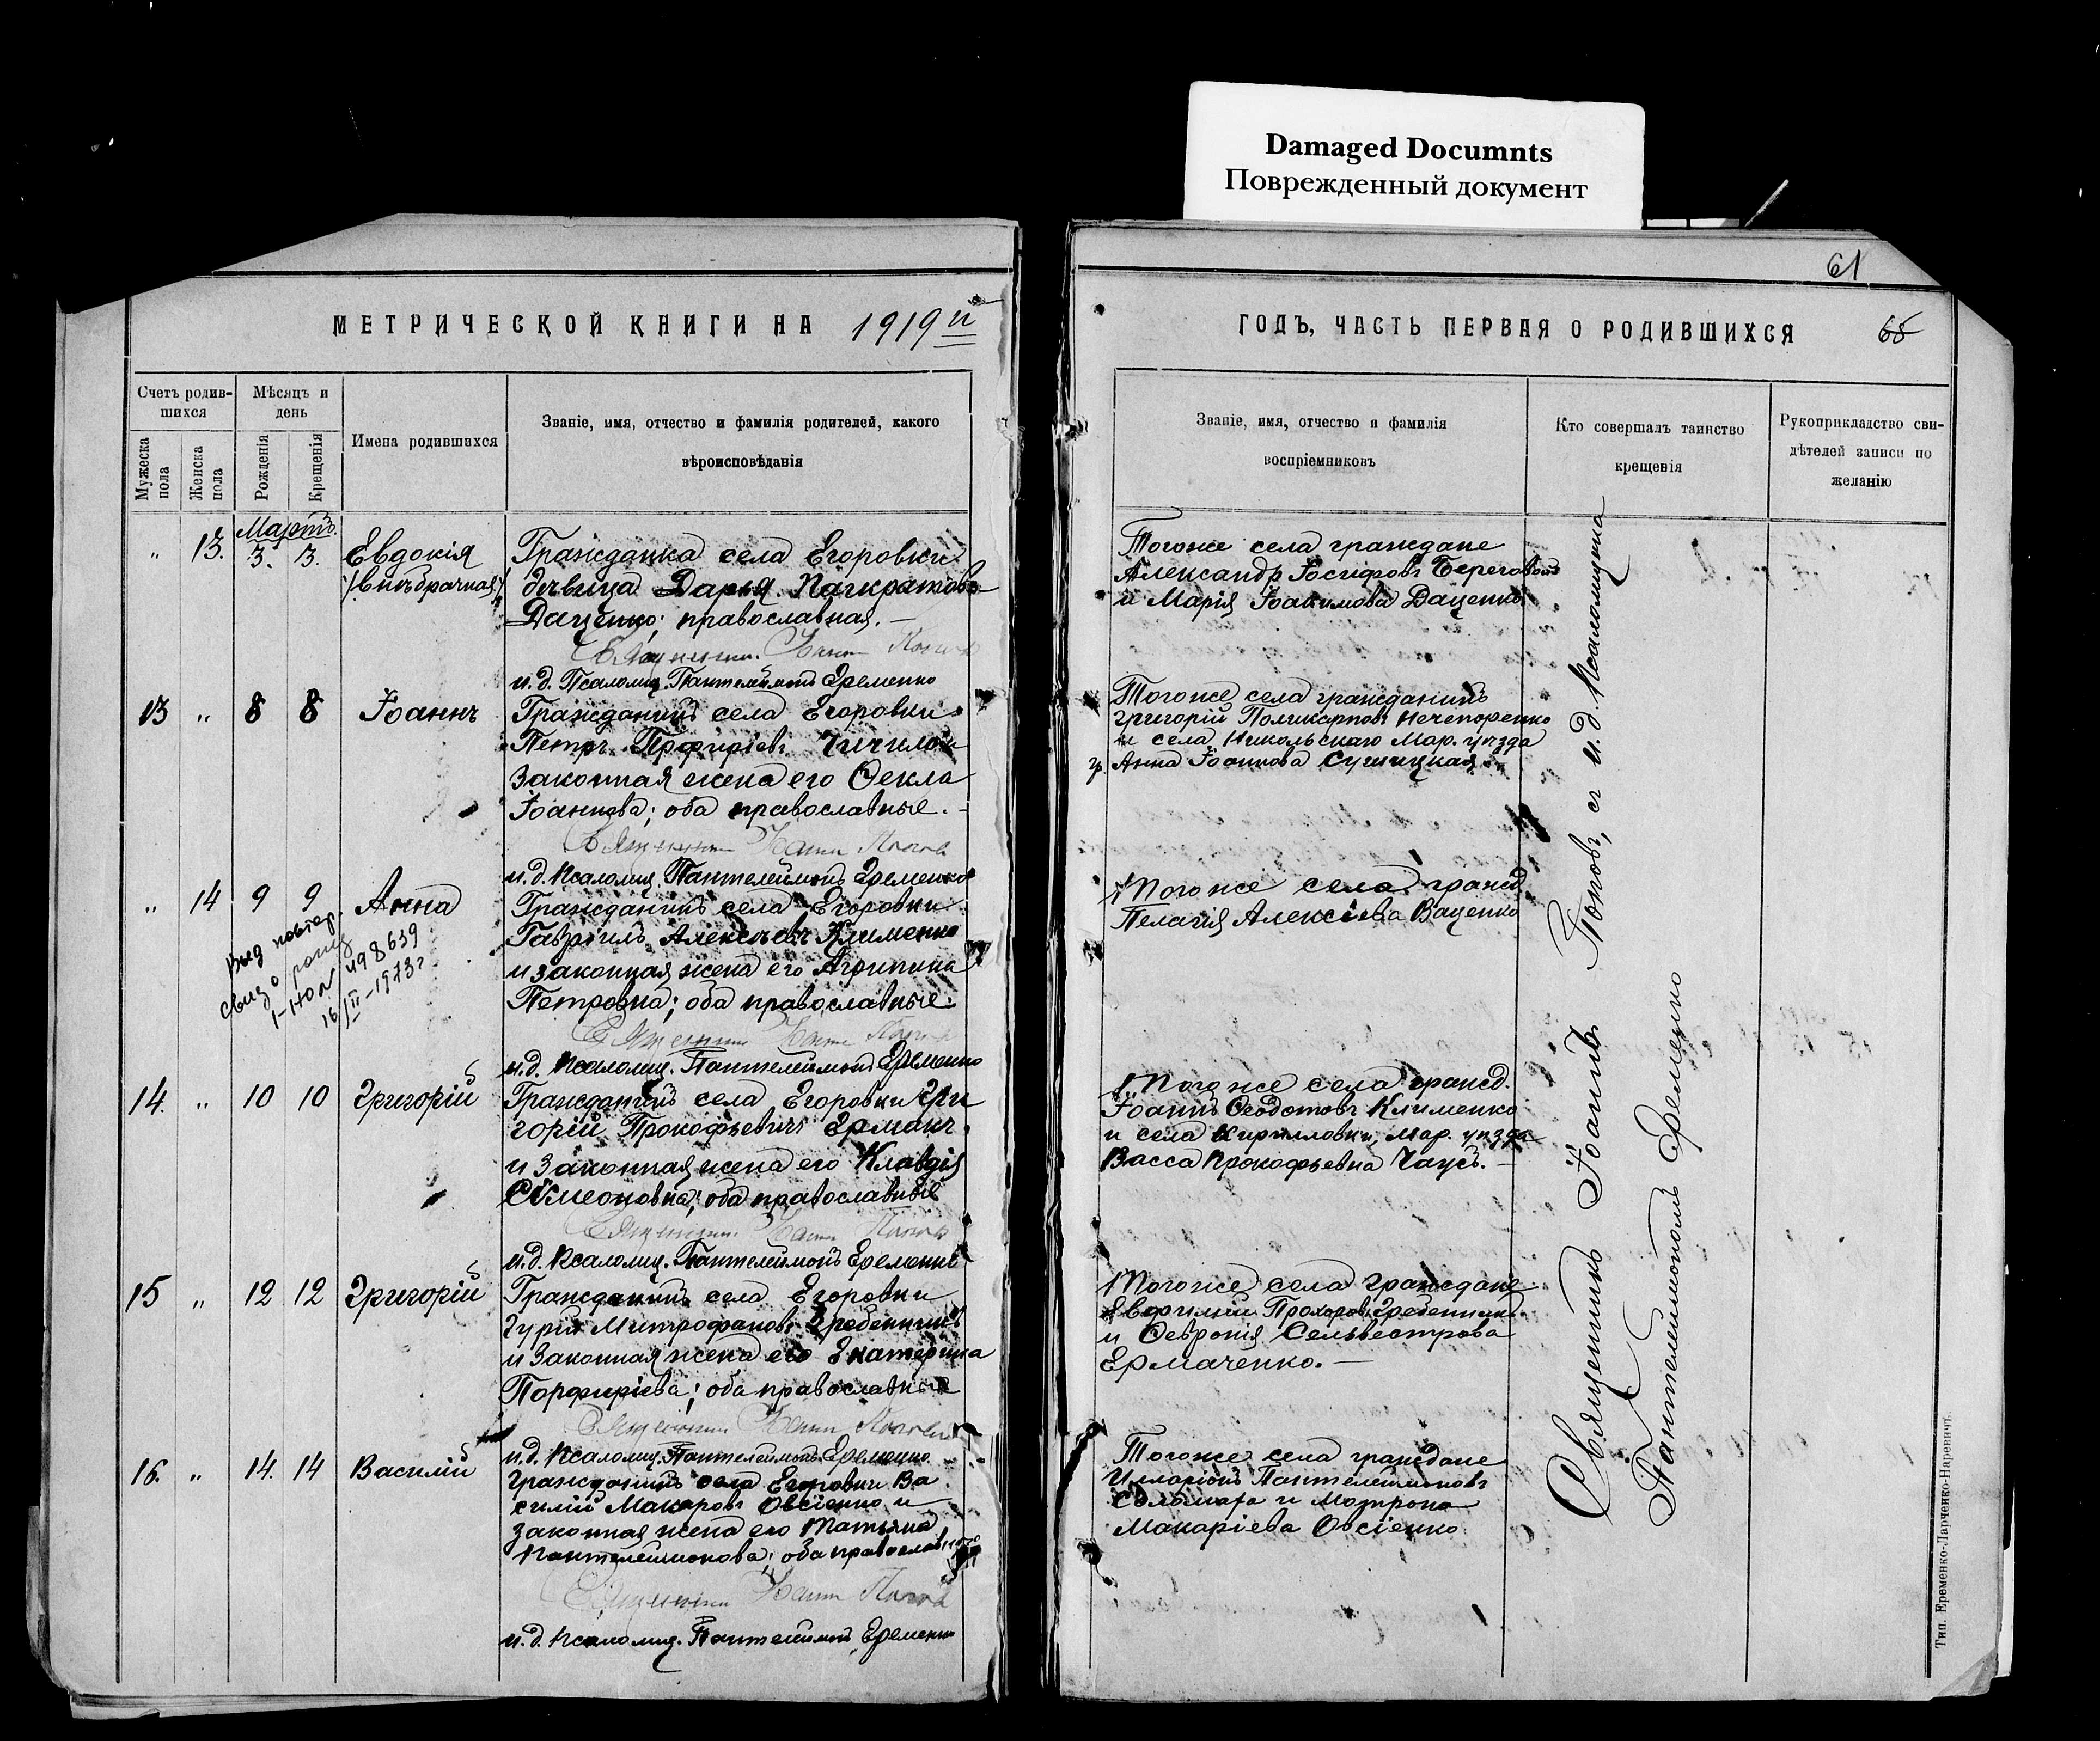 Damaged Documnts
Поврежденный документ
61
МЕТРИЧЕСКОЙ КНИГИ НА 1919й
Счетъ родив-
шихся
Мужеска
пола
Женска
пола
Мѣсяцъ и
день
Рожденія
Крещенія
Имена родившихся
Званіе, имя, отчество и фамилія родителей, какого
вѣроисповѣданія
Мартъ.
" 13. 3. 3. Евдокія
/внѣбрачная/
Гражданка села Егоровки
дѣвица Дарья Панкратова
Даценко; православная. —
Священникъ Іоаннъ Поповъ
и.д. Псаломщ. Пантелеймонъ Еременко
13 " 8 8 Іоаннъ
Гражданинъ села Егоровки
Петръ Порфиріевъ
законная жена его Ѳекла
Іоаннова; оба православные. —
Священникъ Іоаннъ Поповъ
и.д. Псаломщ. Пантелеймонъ Еременко
" 14 9 9 Анна
Выд повтор.
свид о рожд
I-НО № 498639
16/II-1973г
Гражданинъ села Егоровки
Гавріилъ Алексѣевъ Клименко
и законная жена его Агрипина
Петровна; оба православные.
Священникъ Іоаннъ Поповъ
и.д. Псаломщ. Пантелеймонъ Еременко
14. " 10 10 Григорій
Гражданинъ села Егоровки Гри
горій Прокофьевичъ Ермакъ
и законная жена его Клавдія
Симеоновна; оба православные
Священникъ Іоаннъ Поповъ
и.д. Псаломщ. Пантелеймонъ Еременко
15 " 12 12 Григорій
Гражданинъ села Егоровки
Гурій Митрофановъ Гребенникъ
и законная жена его Екатерина
Порфиріева; оба православные
Священникъ Іоаннъ Поповъ
и.д. Псаломщ. Пантелеймонъ Еременко
16. " 14. 14 Василій
Гражданинъ села Егоровки Ва
силій Макаровъ Овсіенко и
законная жена его Татьяна
Пантелеймонова; оба православные
Священникъ Іоаннъ Поповъ
и.д. Псаломщ. Пантелеймонъ Еременко
ГОДЪ, ЧАСТЬ ПЕРВАЯ О РОДИВШИХСЯ
65
Званіе, имя, отчество и фамилія
воспріемниковъ
Кто совершалъ таинство
крещенія
Рукоприкладство сви-
дѣтелей записи по
желанію
Тогоже села граждане
Александръ Іосифовъ Береговой
и Марія Іоакимова Даценко
Тогоже села гражданинъ
Григорій Поликарповъ Нечепоренко
и села Никольскаго Мар. уѣзда
гр. Анна Іоаннова
Тогоже села гражд.
Пелагія Алексіева Ваценко
Тогоже села гражд.
Іоаннъ Ѳеодотовъ Клименко
и села Кирилловки, Мар. уѣзда
Васса Прокофьевна Чаусъ. —
Тогоже села граждане
Евфимій Прохоровъ Гребенникъ
и Ѳевронія Сельвестрова
Ермаченко. —
Тогоже села граждане
Илларіонъ Пантелеймоновъ
и Матрона
Макаріева Овсіенко
Священникъ Іоаннъ Поповъ, съ и.д. Псаломщика
Пантелеймономъ Еременко
Тип. Еременко-Ларченко-Наревичъ.